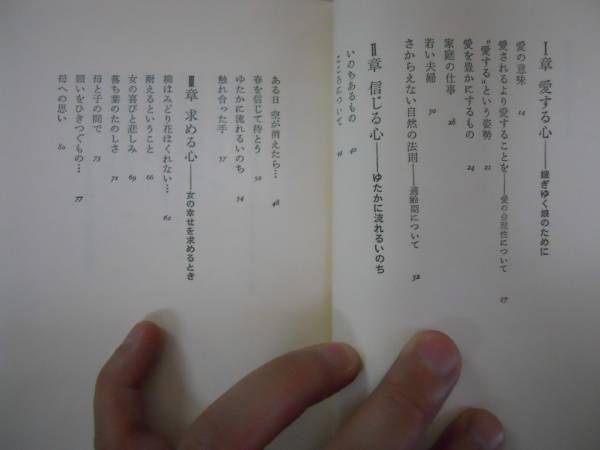 Ⅰ章 愛する心――嫁ぎゆく娘のために
愛の意味 14
愛されるより愛することを――愛の合理性について 17
“愛する”という姿勢 21
愛を豊かにするもの 24
家庭の仕事 28
若い夫婦 30
さからえない自然の法則――適齢期について 32
Ⅱ章 信じる心――ゆたかに流れるいのち
いのちあるもの 40
について
ある日 空が消えたら… 48
春を信じて待とう 52
ゆたかに流れるいのち 54
触れ合った手 57
Ⅲ章 求める心――女の幸せを求めるとき
柳はみどり花はくれない… 62
耐えるということ 66
女の喜びと悲しみ 69
落ち葉のたのしさ 72
母と子の間で 73
願いをひきつぐもの… 77
母への思い 80